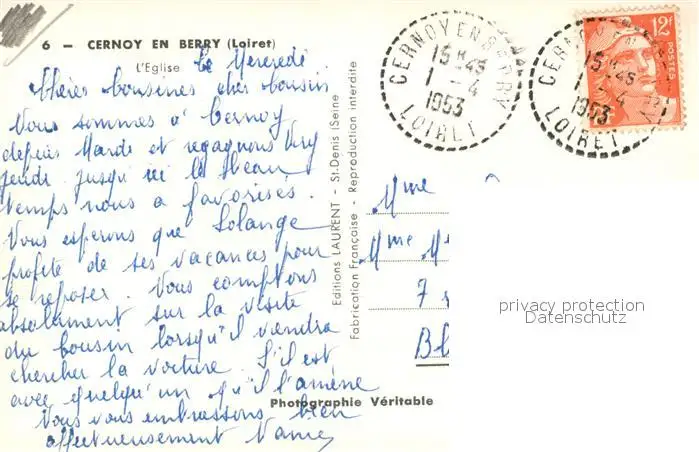 6 — CERNOY EN BERRY (Loiret)
L'Eglise
Le Mercredi
Chères Cousines cher Cousin
Vous sommes à Cernoy
depuis Mardi et regagnons
jeudi jusqu'ici le beau
temps nous a favorisés.
Vous espérons que Solange
profite de ses vacances pour
se reposer. Vous comptons
absolument sur la visite
du Cousin lorsqu'il viendra
chercher la voiture. S'il est
avec quelqu'un qu'il l'amène
Vous vous embrassons bien
affectueusement
Photographie Véritable
Editions LAURENT - St-Denis (Seine
Fabrication Française - Reproduction interdite
CERNOY EN BERRY
15 H 45
1 - 4
1953
LOIRET
15 H 45
1953
LOIRET
12F
POSTES
Mme
Mme M
7
Bl
privacy protection
Datenschutz